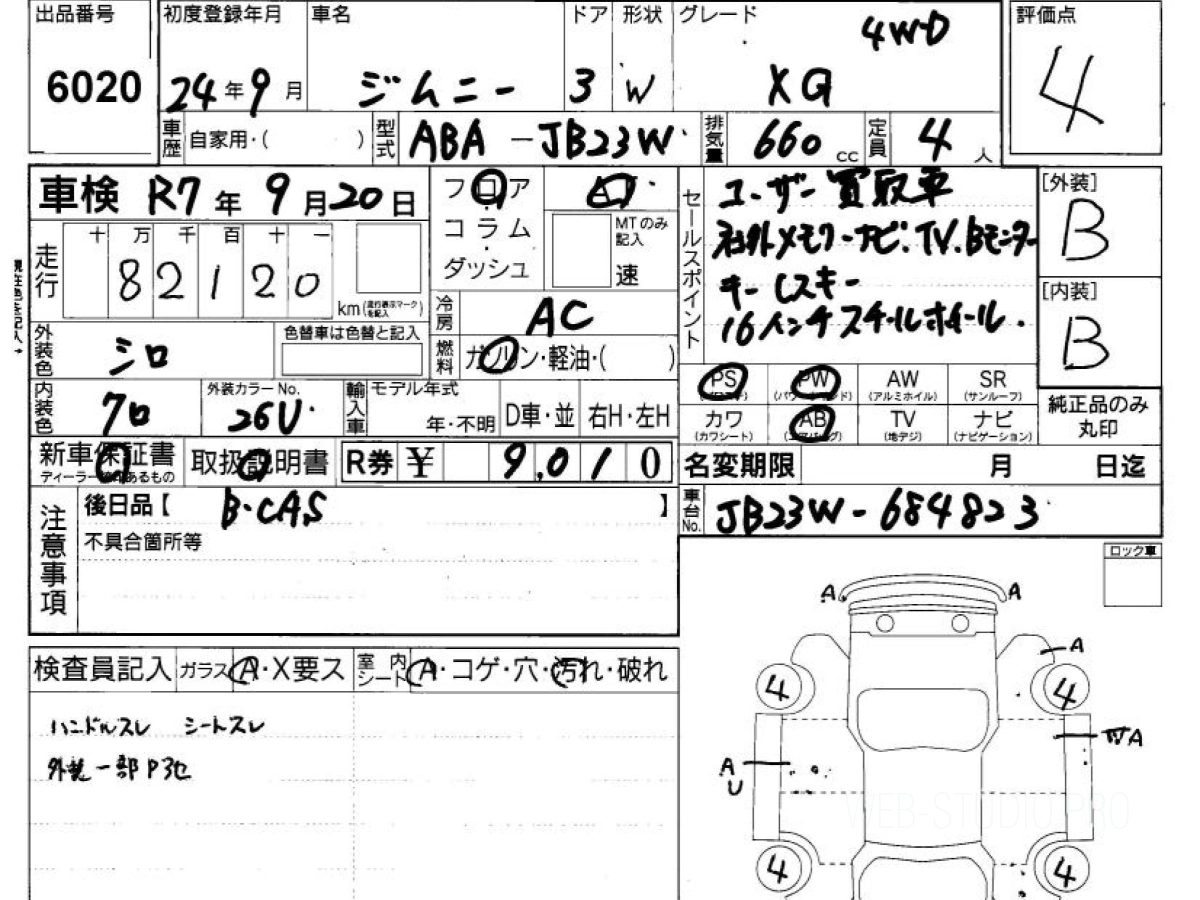 出品番号 初度登録年月 車名 ドア 形状 グレード 評価点
6020 24年9月 ジムニー 3 W 4WD XG 4
車歴 自家用・( ) 型式 ABA-JB23W 排気量 660cc 定員 4人
車検 R7年9月20日 フロア AT
コラム
・
ダッシュ
MTのみ記入 速
走行 十 万 千 百 十 一
82120 km(走行表示マークを記入)
冷房 AC
外装色 シロ 色替車は色替と記入
燃料 ガソリン・軽油・( )
内装色 クロ 外装カラーNo. 26U 輸入車 モデル年式 年・不明 D車・並 右H・左H
新車保証書 取扱説明書 R券 ¥ 9,010
セールスポイント
ユーザー買取車
社外メモリーナビ.TV.Bモニター
キーレスキー
16インチスチールホイール.
[外装] B
[内装] B
PS PW AW SR
(パワステ) (パワーウィンド) (アルミホイル) (サンルーフ)
カワ AB TV ナビ
(カワシート) (エアバッグ) (地デジ) (ナビゲーション)
純正品のみ
丸印
名変期限 月 日迄
車台No. JB23W-684823
注意事項
後日品【 B・CAS 】
不具合箇所等
検査員記入 ガラス A・X要ス 室内シート A・コゲ・穴・汚れ・破れ
ハンドルスレ シートスレ
外装一部P3也
ロック車
A A
A
4 4
A
A
U
4 4
WEB-STUDIO.PRO